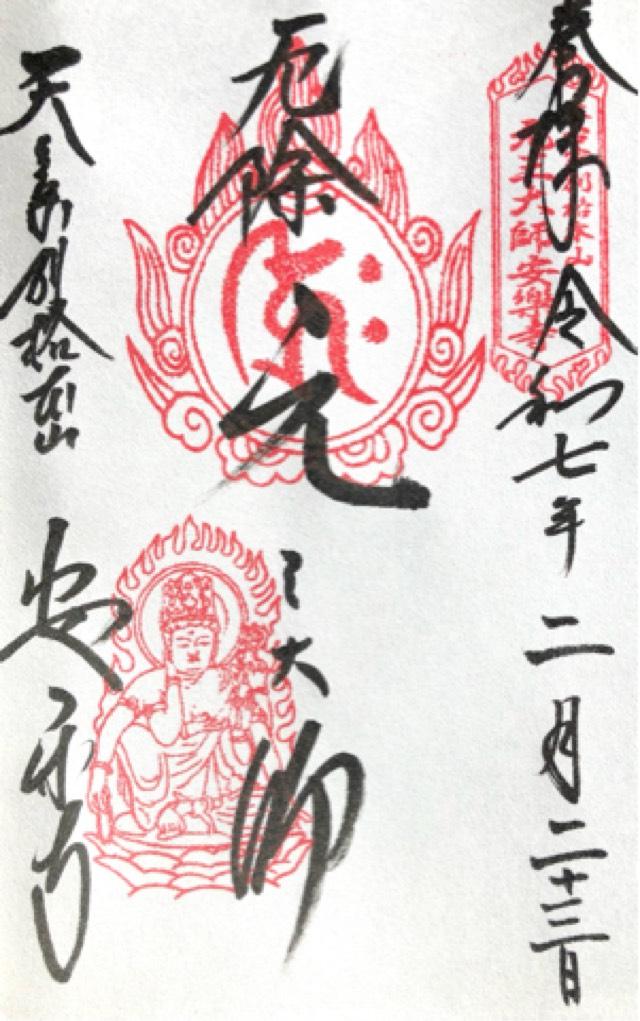 奉拝 令和七年二月二十三日
元三大師安楽寺
厄除 元三大師
天台宗別格本山
安楽寺